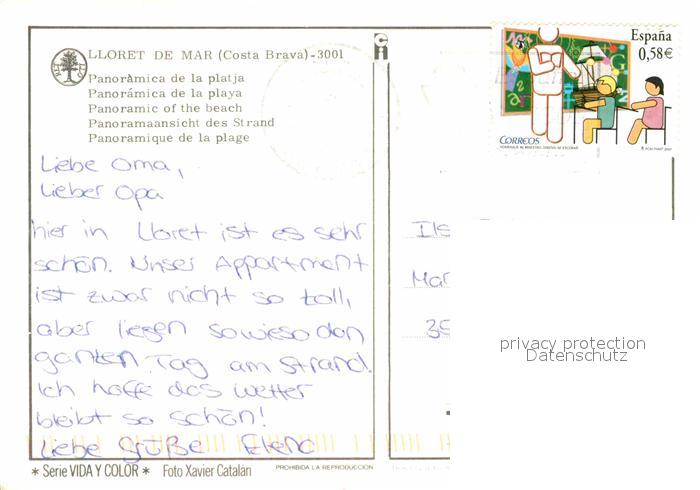 LLORET DE MAR (Costa Brava)-3001
Panoràmica de la platja
Panorámica de la playa
Panoramic of the beach
Panoramaansicht des Strand
Panoramique de la plage
Liebe Oma,
Lieber Opa
hier in Lloret ist es sehr
schön. Unser Appartment
ist zwar nicht so toll,
aber liegen sowieso den
ganzen Tag am Strand.
Ich hoffe das wetter
bleibt so schön!
Liebe Grüße Elena
* Serie VIDA Y COLOR * Foto Xavier Catalán
PROHIBIDA LA REPRODUCCION
España
0,58€
CORREOS
Ils
Mar
35
privacy protection
Datenschutz